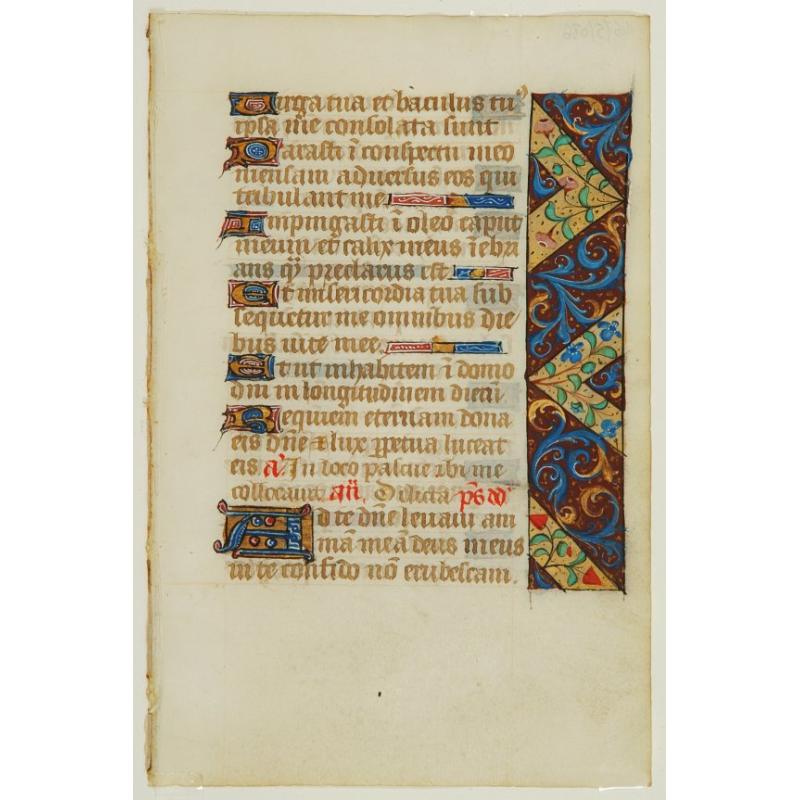 Virga tua et baculus tu⁹
ipsa me consolata sunt
Parasti ī conspectu meo
mensam adversus eos qui
tribulant me.
Impingasti ī oleo caput
meum et calix meus īebri
ans q̄ preclarus est
Et misericordia tua sub
sequetur me omnibus die
bus vite mee.
Et ut inhabitem ī domo
dn̄i in longitudinem dierū.
Requiem eternam dona
eis dn̄e & lux ꝑpetua luceat
eis a᷑. In loco pascue ibi me
collocavit añ. Delicta p̄s dd
Ad te dn̄e levavi ani
mā meā deus meus
in te confido nō erubescam.